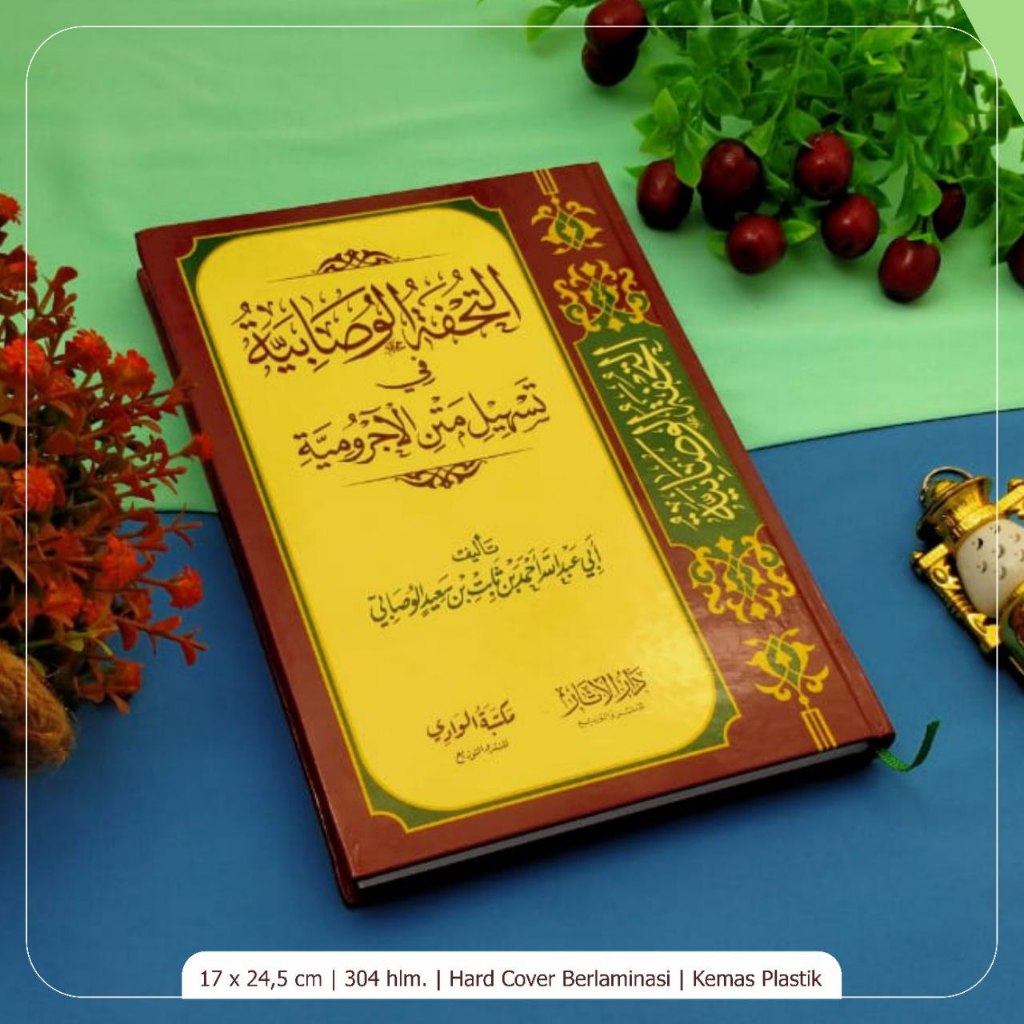 التُّحْفَةُ الْوُصَابِيَّةُ
فِي
تَسْهِيلِ مَتْنِ الْآجُرُّومِيَّةِ
تَأليف
أَبِي عَبْدِ اللَّهِ أَحْمَدَ بْنِ ثَابِتِ بْنِ سَعِيدٍ الْوُصَابِيِّ
دَارُ الْآثَارِ
للنشر والتوزيع
مكتبة الوادي
للنشر والتوزيع
التحفة الوصابية
17 x 24,5 cm | 304 hlm. | Hard Cover Berlaminasi | Kemas Plastik